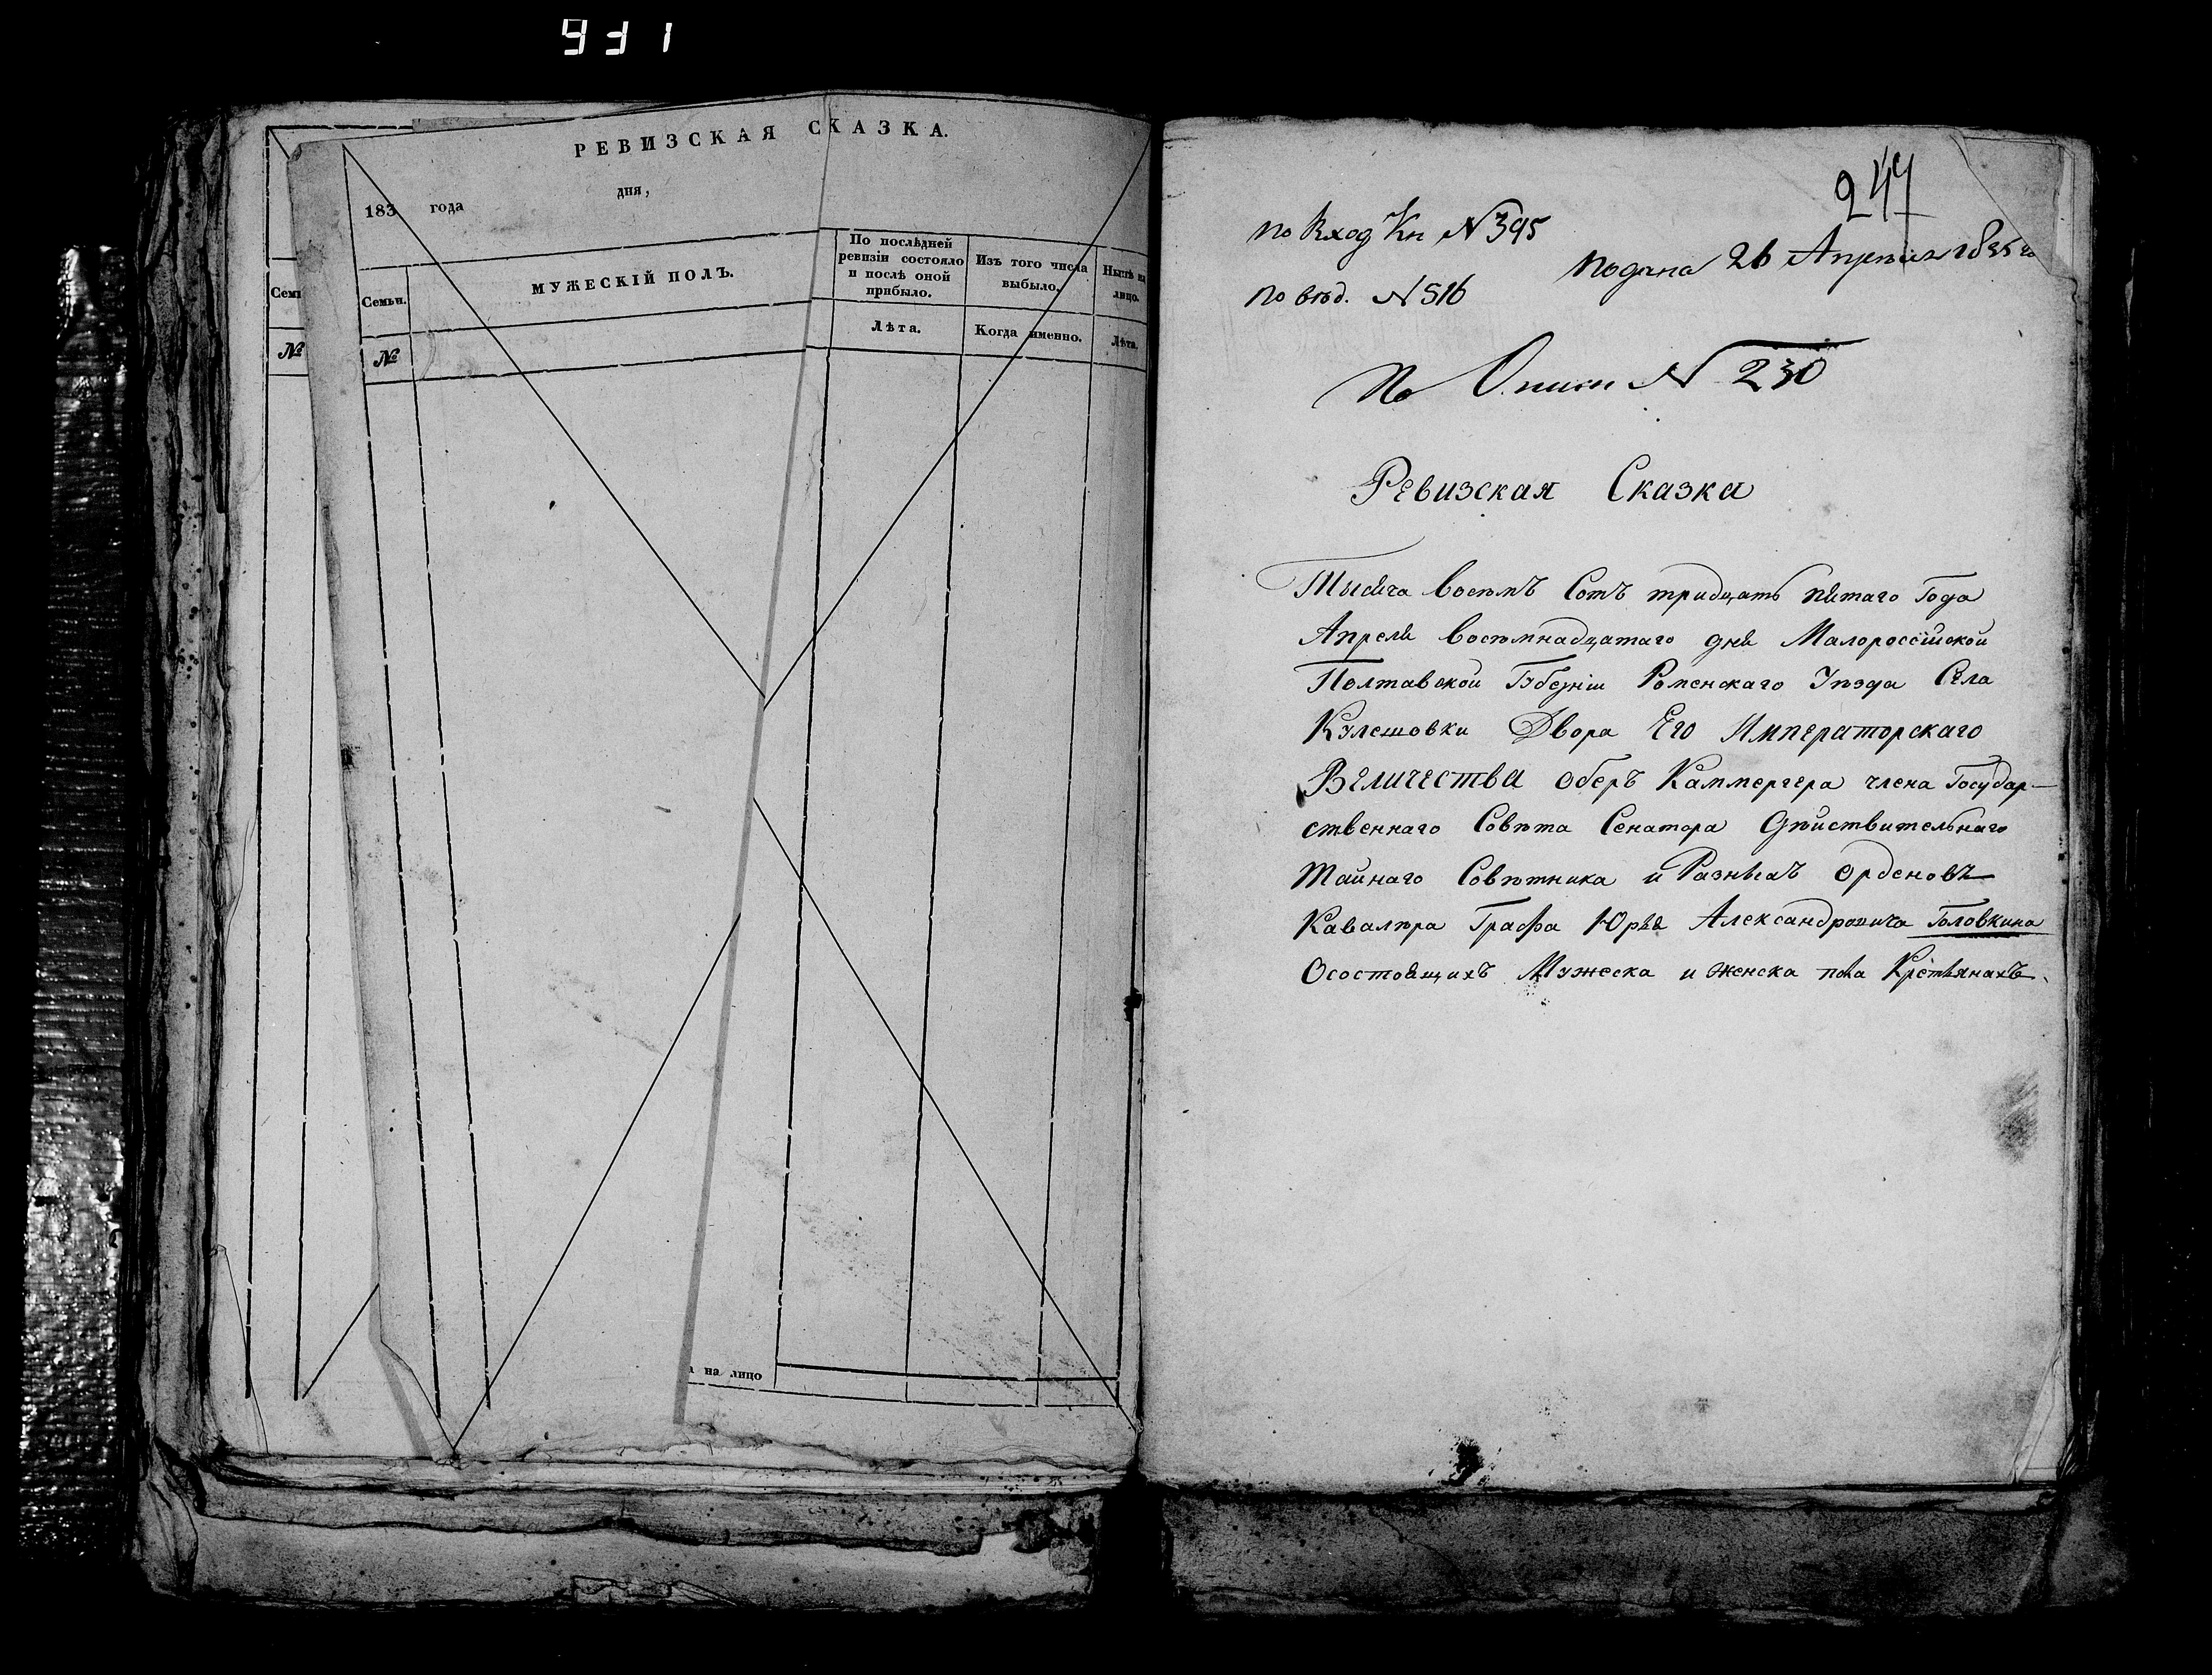 РЕВИЗСКАЯ СКАЗКА.
183 года дня,
Семьи.
МУЖЕСКІЙ ПОЛЪ.
По послѣдней ревизіи состояло и послѣ оной прибыло.
Изъ того числа выбыло.
Нынѣ на лицо.
№
Лѣта.
Когда именно.
Лѣта.
на лицо
Семь
№
247
по Вход Кн № 395
подана 26 Апрѣля 1835 го
по вѣд. № 516
По Описи № 230
Ревизская Сказка
Тысяча восемъ Сотъ тридцать пятаго Года
Апреля восемнадцатаго дня Малороссійской
Полтавской Губерніи Роменскаго Уѣзда Села
Кулешовки Двора Его Императорскаго
Величества оберъ Каммергера члена Государ-
ственнаго Совѣта Сенатора Дѣйствительнаго
Тайнаго Совѣтника и Разныхъ Орденовъ
Кавалѣра Графа Юрья Александровича Головкина
Осостоящихъ Мужеска и женска пола Крестьянахъ